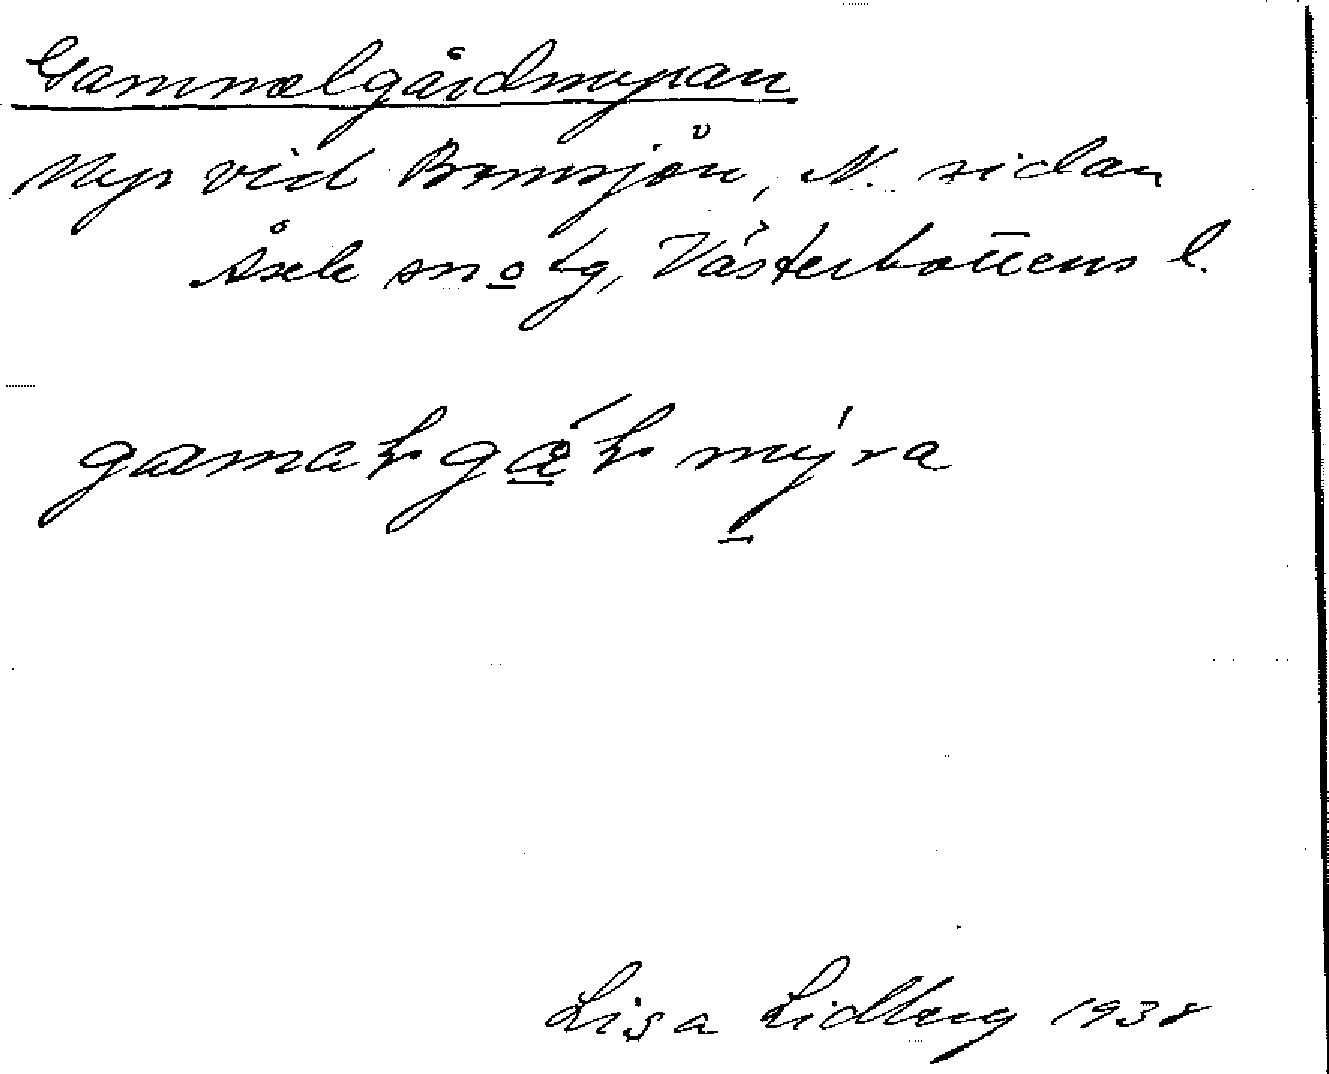 Gammelgårdmyran
Myr vid Bomsjön, N. sidan
Åsele sn o tg, Västerbottens l.
gamaḷgǽḷ mýra
Lisa Lidberg 1938